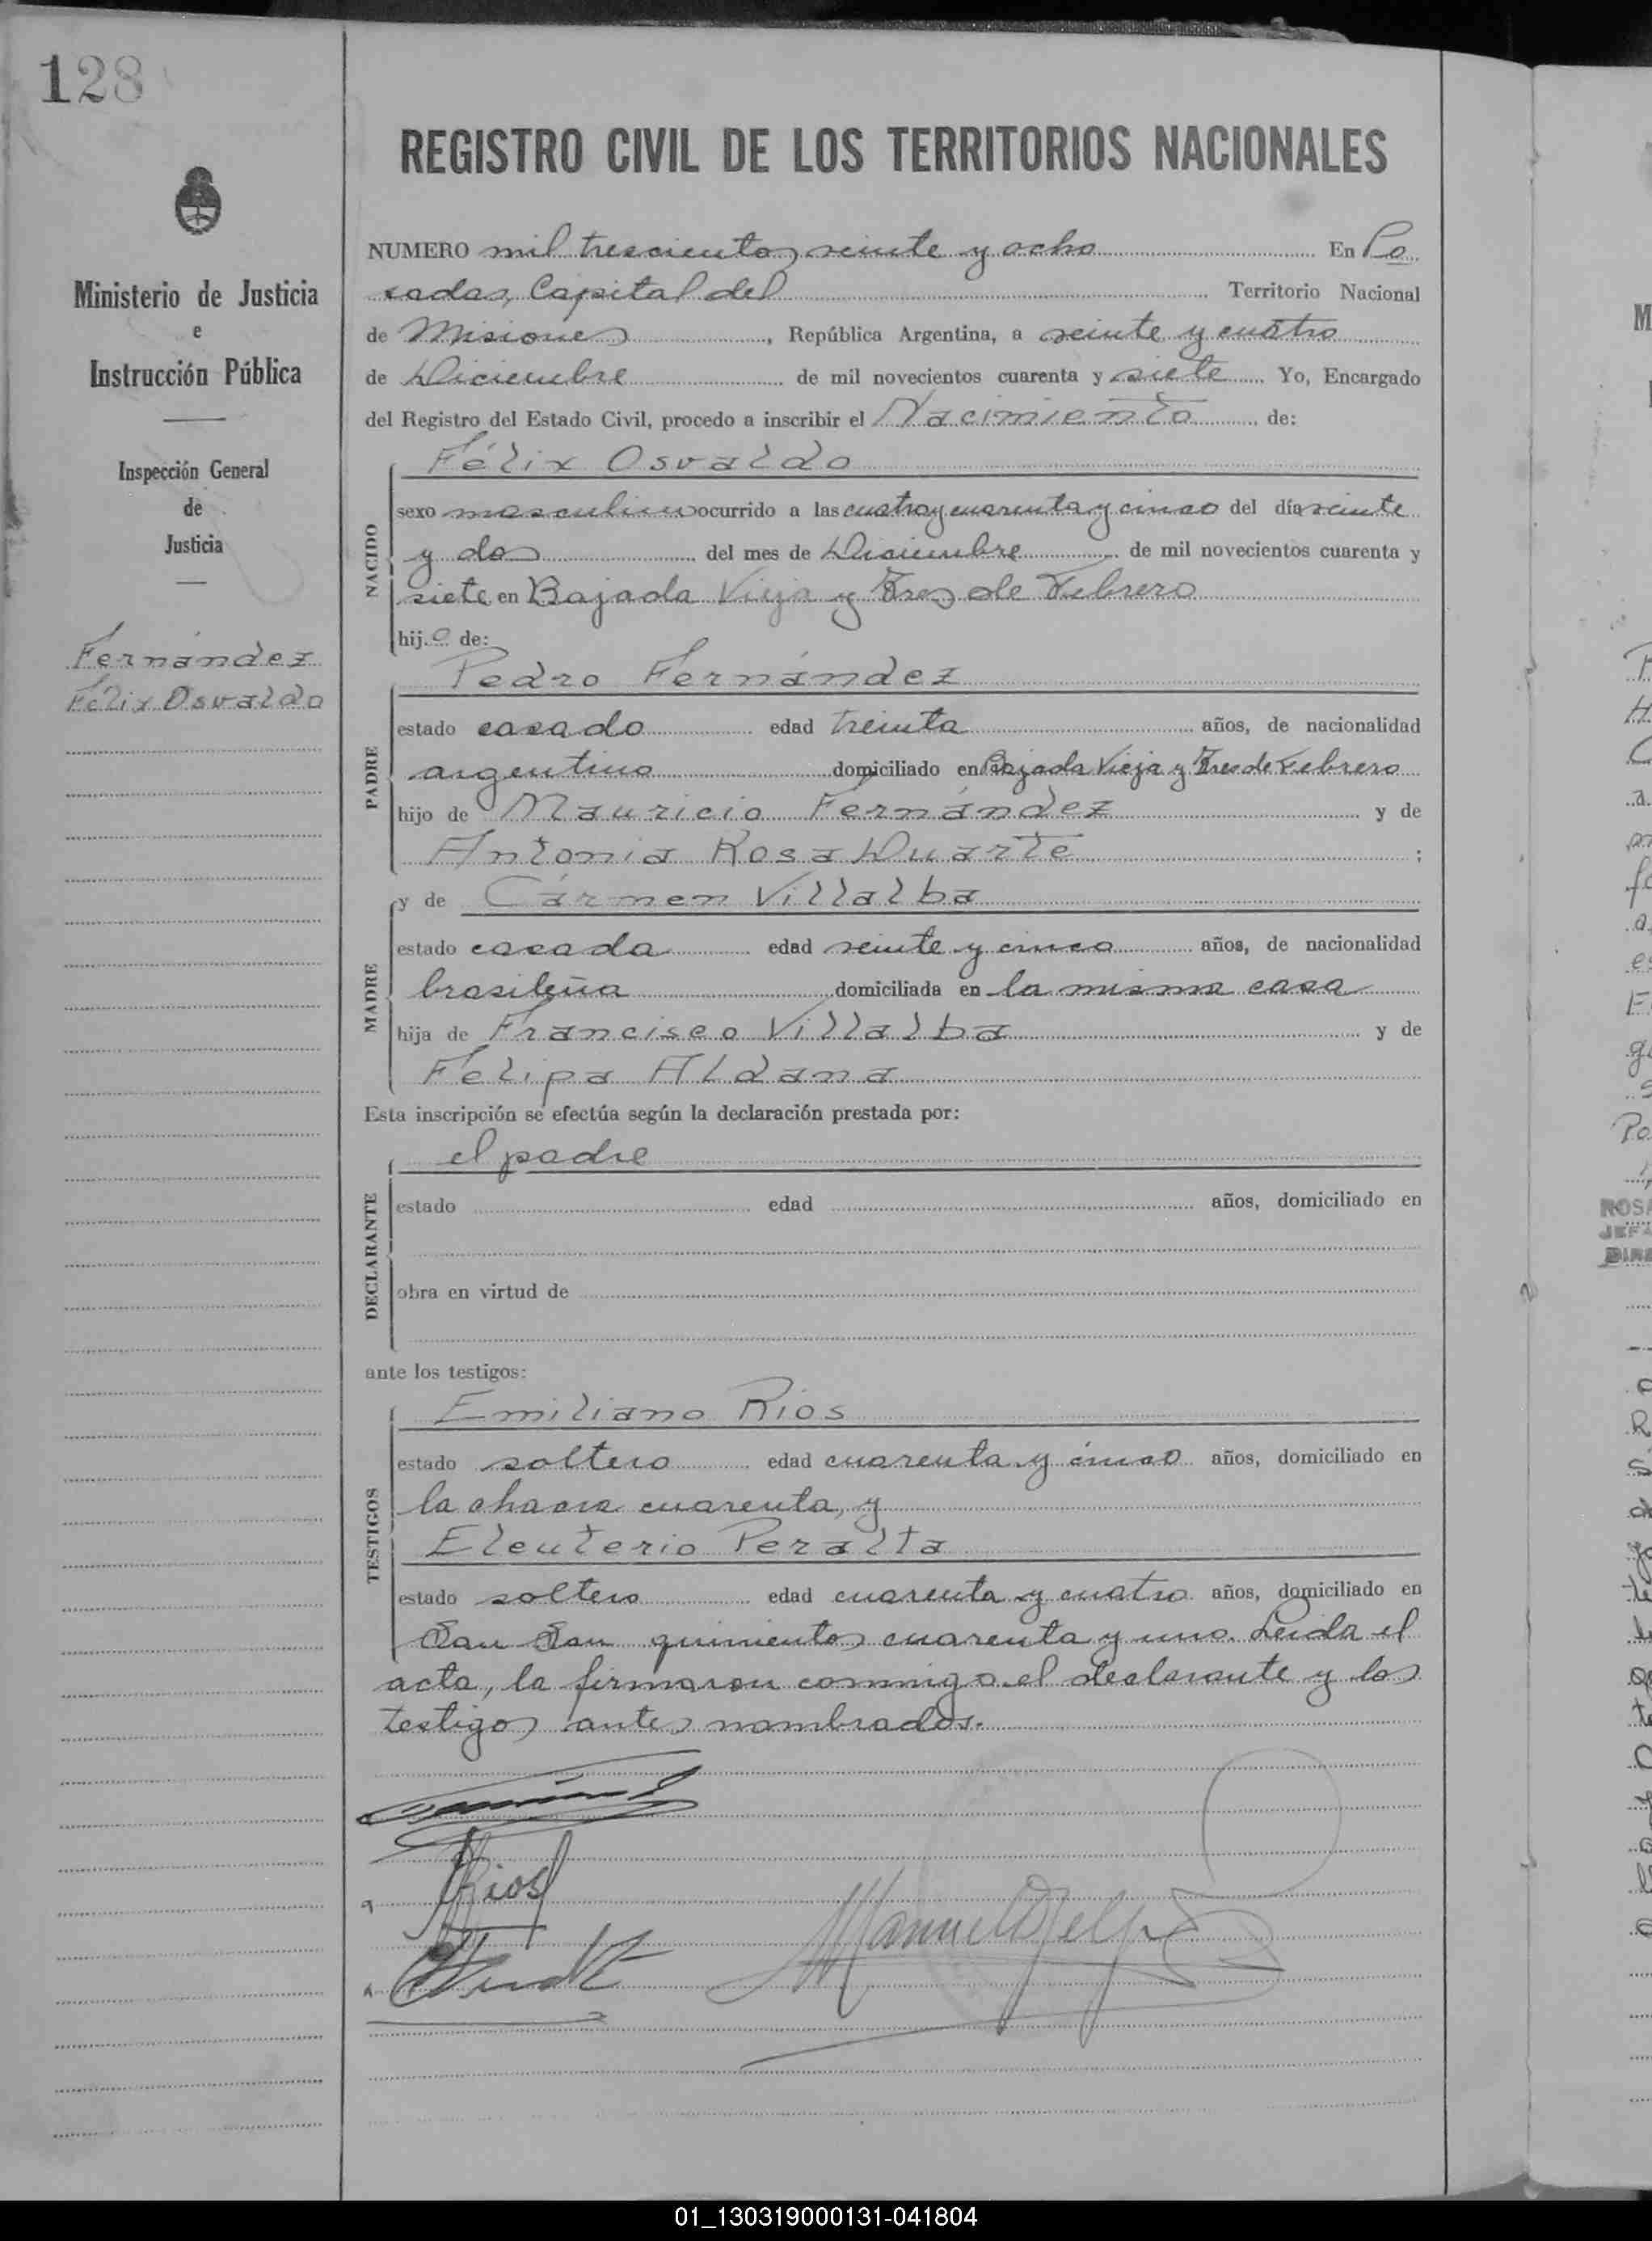 128
REGISTRO CIVIL DE LOS TERRITORIOS NACIONALES
Ministerio de Justicia
e
Instrucción Pública
Inspección General
de
Justicia
Fernández
Félix Osvaldo
NUMERO mil trescientos veinte y ocho En Po
sadas, Capital del Territorio Nacional
de Misiones, República Argentina, a veinte y cuatro
de Diciembre de mil novecientos cuarenta y siete Yo, Encargado
del Registro del Estado Civil, procedo a inscribir el Nacimiento de:
NACIDO
Félix Osvaldo
sexo masculino ocurrido a las cuatro y cuarenta y cinco del día veinte
y dos del mes de Diciembre de mil novecientos cuarenta y
siete en Bajada Vieja y Tres de Febrero
hijo de:
PADRE
Pedro Fernández
estado casado edad treinta años, de nacionalidad
argentino domiciliado en Bajada Vieja y Tres de Febrero
hijo de Mauricio Fernández y de
Antonia Rosa Duarte ;
MADRE
y de Cármen Villalba
estado casada edad veinte y cinco años, de nacionalidad
brasileña domiciliada en la misma casa
hija de Francisco Villalba y de
Felipa Aldana
Esta inscripción se efectúa según la declaración prestada por:
DECLARANTE
el padre
estado edad años, domiciliado en
obra en virtud de
ante los testigos:
TESTIGOS
Emiliano Rios
estado soltero edad cuarenta y cinco años, domiciliado en
la chacra cuarenta, y
Eleuterio Peralta
estado soltero edad cuarenta y cuatro años, domiciliado en
quinientos cuarenta y uno. Leida el
acta, la firmaron conmigo el declarante y los
testigos antes nombrados.
Rios
01_130319000131-041804